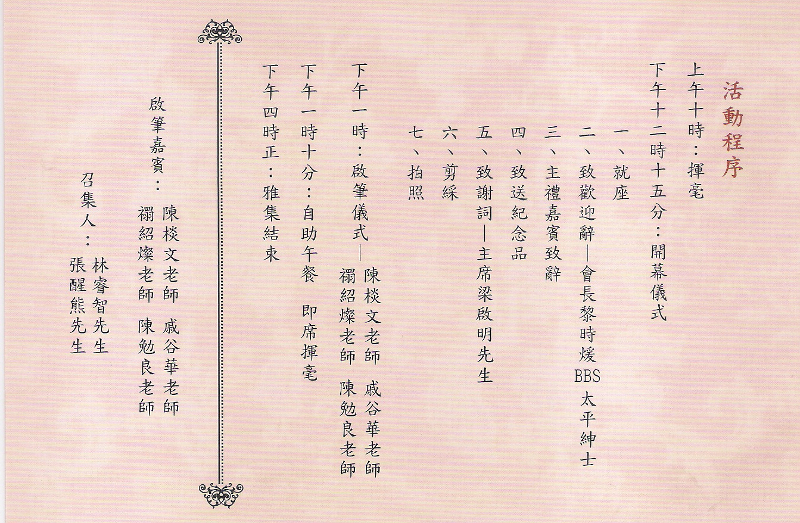 活動程序
上午十時：揮毫
下午十二時十五分：開幕儀式
一、就座
二、致歡迎辭—會長黎時煖BBS太平紳士
三、主禮嘉賓致辭
四、致送紀念品
五、致謝詞—主席梁啟明先生
六、剪綵
七、拍照
下午一時：啟筆儀式—
陳棪文老師 戚谷華老師
禤紹燦老師 陳勉良老師
下午一時十分：自助午餐 即席揮毫
下午四時正：雅集結束
啟筆嘉賓：
陳棪文老師 戚谷華老師
禤紹燦老師 陳勉良老師
召集人：
林睿智先生
張醒熊先生